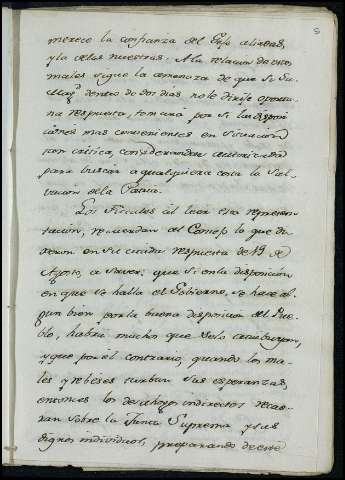 5
merece la confianza del Exto aliado,
y la de las nuestras. A la relacion de estos
males sigue la amenaza de que si Su
Mag.d dentro de dos dias no le dirije oportu-
na respuesta, tomará por si las disposi-
ciones mas convenientes en situacion
tan critica, considerandose autorizado
para buscar a qualquiera costa la Sal-
vacion de la Patria.
Los Fiscales al leer esta represen-
tacion, recuerdan al Consejo lo que di-
xeron en su citada respuesta de 19 de
Agosto, a saver: que si en la disposicion
en que se halla el Gobierno, se hace al-
gun bien por la buena disposicion del Pue-
blo, habrá mucho que
y que por el contrario, quando los ma-
les y rebéses turban sus esperanzas,
entonces los desahogos indirectos recae-
ran sobre la Junta Suprema y sus
dignos individuos, preparando de este